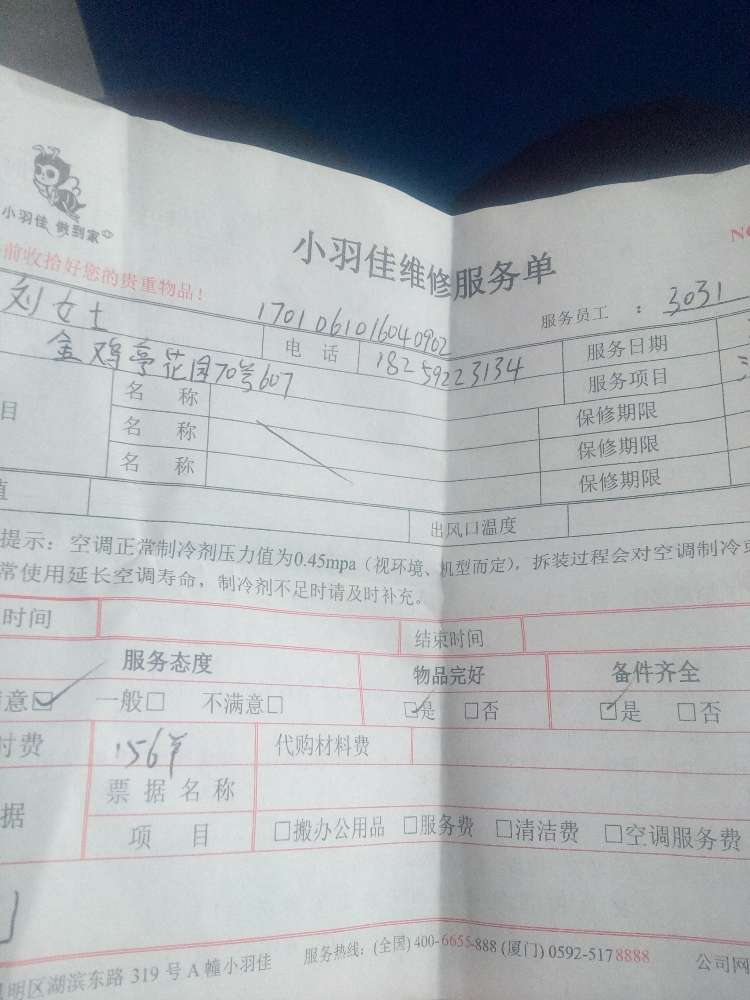 小羽佳 做到家
小羽佳维修服务单
前收拾好您的贵重物品！
服务员工 ： 3031
刘女士
1701061016040902
电 话 18259223134 服务日期
金鸡亭花园70号607
服务项目
目 名 称 保修期限
名 称 保修期限
名 称 保修期限
值 出风口温度
提示：空调正常制冷剂压力值为0.45mpa（视环境、机型而定），拆装过程会对空调制冷
常使用延长空调寿命，制冷剂不足时请及时补充。
时间 结束时间
服务态度 物品完好 备件齐全
意☑ 一般□ 不满意□ ☑是 □否 ☑是 □否
时费 156半 代购材料费
据 票据名称
项 目 □搬办公用品 □服务费 □清洁费 □空调服务费
明区湖滨东路 319 号 A 幢小羽佳 服务热线：(全国) 400-6655-888 (厦门) 0592-5178888 公司网